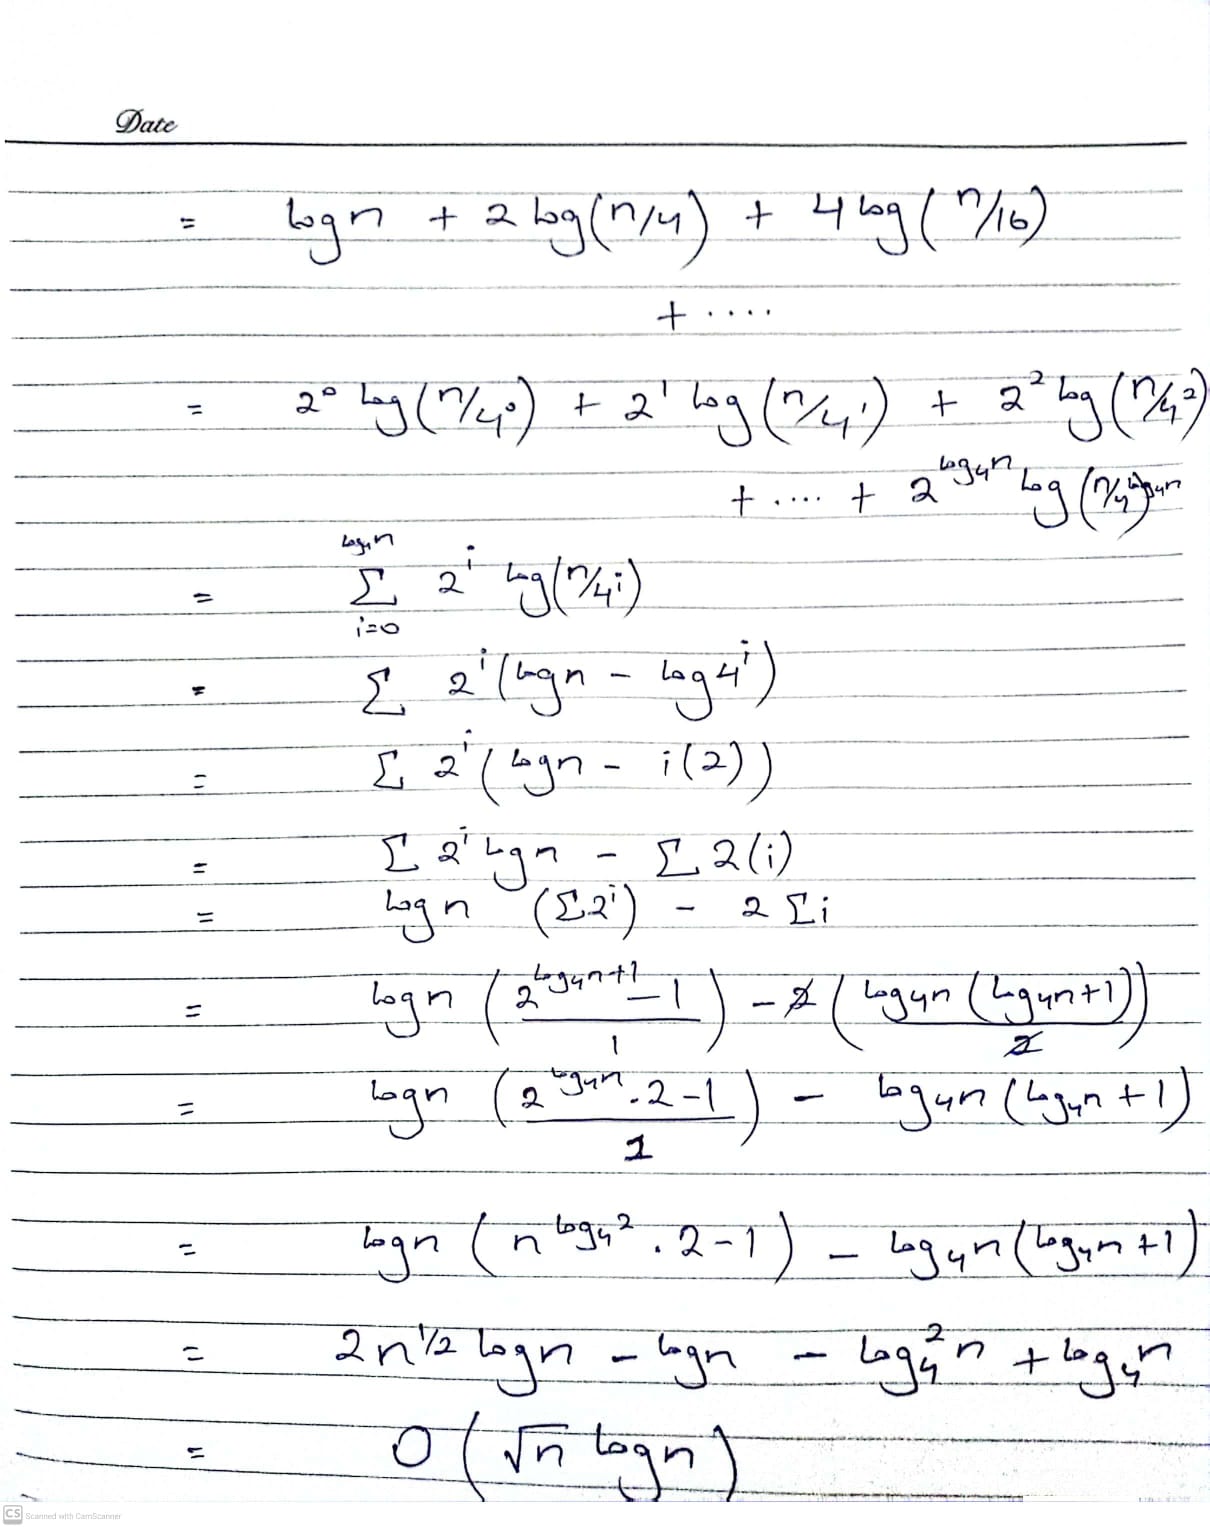 Date
= log n + 2 log(n/4) + 4 log(n/16)
+ ....
= 2⁰ log(n/4⁰) + 2¹ log(n/4¹) + 2² log(n/4²)
+ .... + 2^(log₄n) log(n/4^(log₄n)
= Σ_(i=0)^(log₄n) 2^i log(n/4^i)
= Σ 2^i (log n - log 4^i)
= Σ 2^i (log n - i(2))
= Σ 2^i log n - Σ 2(i)
= log n (Σ2^i) - 2 Σi
= log n ((2^(log₄n+1) - 1)/1) - 2 (log₄n (log₄n+1))/2)
= log n ((2^(log₄n) . 2 - 1)/1) - log₄n (log₄n + 1)
= log n (n^(log₄2) . 2 - 1) - log₄n (log₄n + 1)
= 2n^(1/2) log n - log n - log₄²n + log₄n
= O(√n log n)
CS Scanned with CamScanner